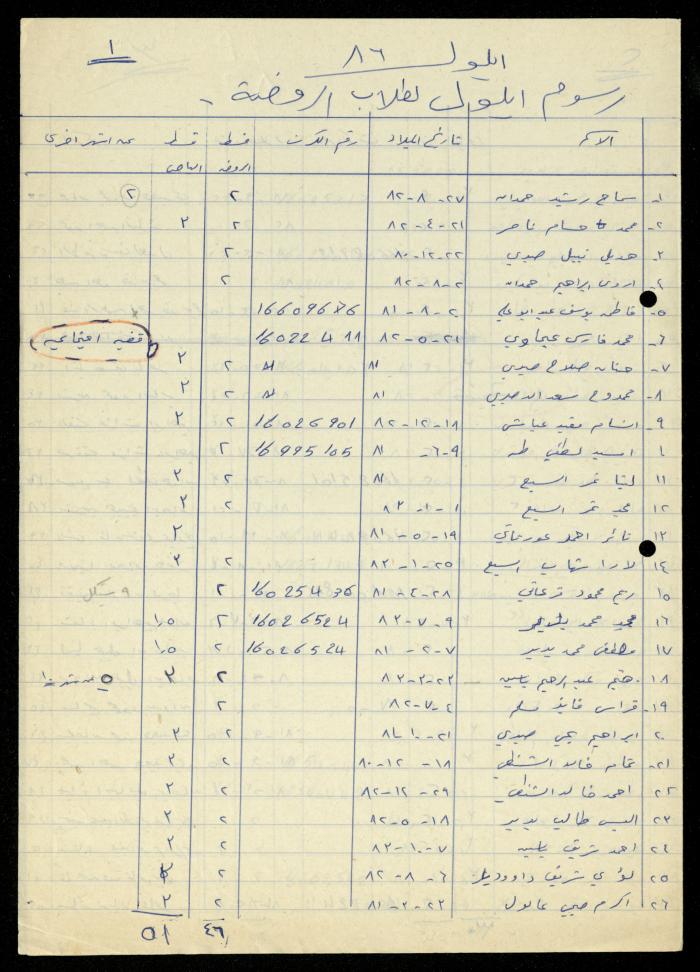 ١
ايلول ٨٦
رسوم ايلول لطلاب الروضة -
الاسم تاريخ الميلاد رقم الكرت قسط الروضة قسط الباص عن اشهر اخرى
١- سماح رشيد حمدان ٢٧-٨-٨٢ ٢ ٢
٢- محمد حسام ناصر ٢١-٤-٨٢ ٢ ٢
٣- هديل نبيل صبري ٢٢-١٢-٨٠ ٢
٤- اروى ابراهيم حمدان ٢-٨-٨٢ ٢
٥- فاطمه يوسف ٢-٨-٨١ 16609676
٦- محمد فارس ٢١-٥-٨٢ 16022411 قضيه اجتماعيه
٧- حنان صلاح صبري ٨١ ٢ ٢
٨- ممدوح سعد الدين صبري ٨١ ٢ ٢
٩- ابتسام مفيد عياش ١٨-١٢-٨٢ 16026901 ٢ ٢
١٠ اسيد لطفي طه ٩-٦-٨١ 16995105 ٢
١١ لينا نمر السبع ٨١ ٢ ٣
١٢ نمر السبع ١-١-٨٢ ٢ ٣
١٣ ثائر احمد ١٩-٥-٨١ ٢
١٤ لارا شهاب السبع ٢٥-١-٨٢ ٢ ٣
١٥ ريم محمود قرعاني ٢٨-٤-٨١ 16025436 ٢ ٩ شيكل
١٦ محمد ٩-٧-٨٢ 16026524 ٢ ١٫٥
١٧ مصطفى محمد بدير ٧-٢-٨١ 16026524 ٢ ١٫٥
١٨ هيثم عبد الرحيم ياسين ٢٣-٣-٨٢ ٢ ٣ ٥ عن شهر
١٩- فراس فايز مسلم ٢-٧-٨٢ ٢
٢٠ ابراهيم يحيى صبري ٢١-١٠-٨١ ٢ ٣
٢١- تمام خالد الشنطي ١٨-١٢-٨٠ ٢ ٣
٢٢ احمد خالد الشنطي ٢٩-١٢-٨٢ ٢ ٣
٢٣ اليس طالب بدير ١٨-٥-٨٢ ٢ ٣
٢٤ احمد شريف ياسين ٧-١٠-٨٢ ٢ ٣
٢٥ لؤي شريف داوود ٦-٨-٨٢ ٢ ٣
٢٦ اكرم صبحي ٢٣-٣-٨١ ٢ ٣
٤٦ ٥١